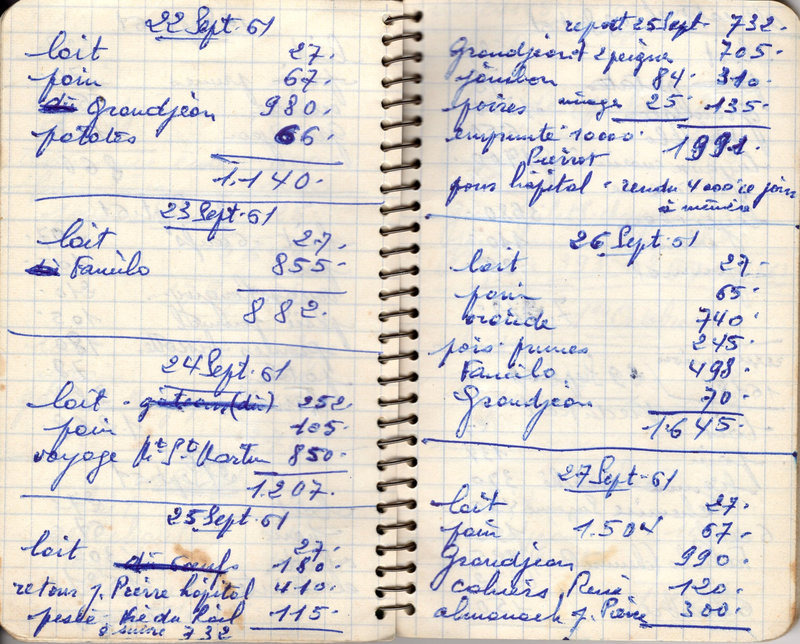 22 Sept. 61
lait 27.
pain 67.
Grandjean 980.
patates 66.
1.140.
23 Sept. 61
lait 27.
Familo 855.
882.
24 Sept. 61
lait - gâteaux (dû) 252
pain 105.
voyage Pt St Martin 850.
1.207.
25 Sept. 61
lait 27.
180.
retour J. Pierre hôpital 410.
115.
732
report 25 Sept. 732.
Grandjean 2 peignes 705.
jambon 84. 310.
poires 25 135.
emprunté 10000. 1991.
Pierrot
pour hôpital - rendu 4000 ce jour
à mémère
26 Sept. 61
lait 27.
pain 65.
viande 740.
pois prunes 245.
Familo 498.
Grandjean 70.
1.645.
27 Sept. 61
lait 27.
pain 1.504 67.
Grandjean 990.
cahiers René 120.
almanach J. Pierre 300.